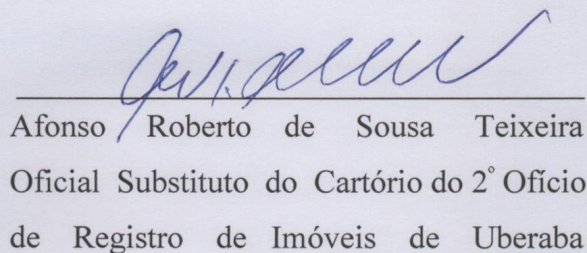 Afonso Roberto de Sousa Teixeira
Oficial Substituto do Cartório do 2º Ofício
de Registro de Imóveis de Uberaba